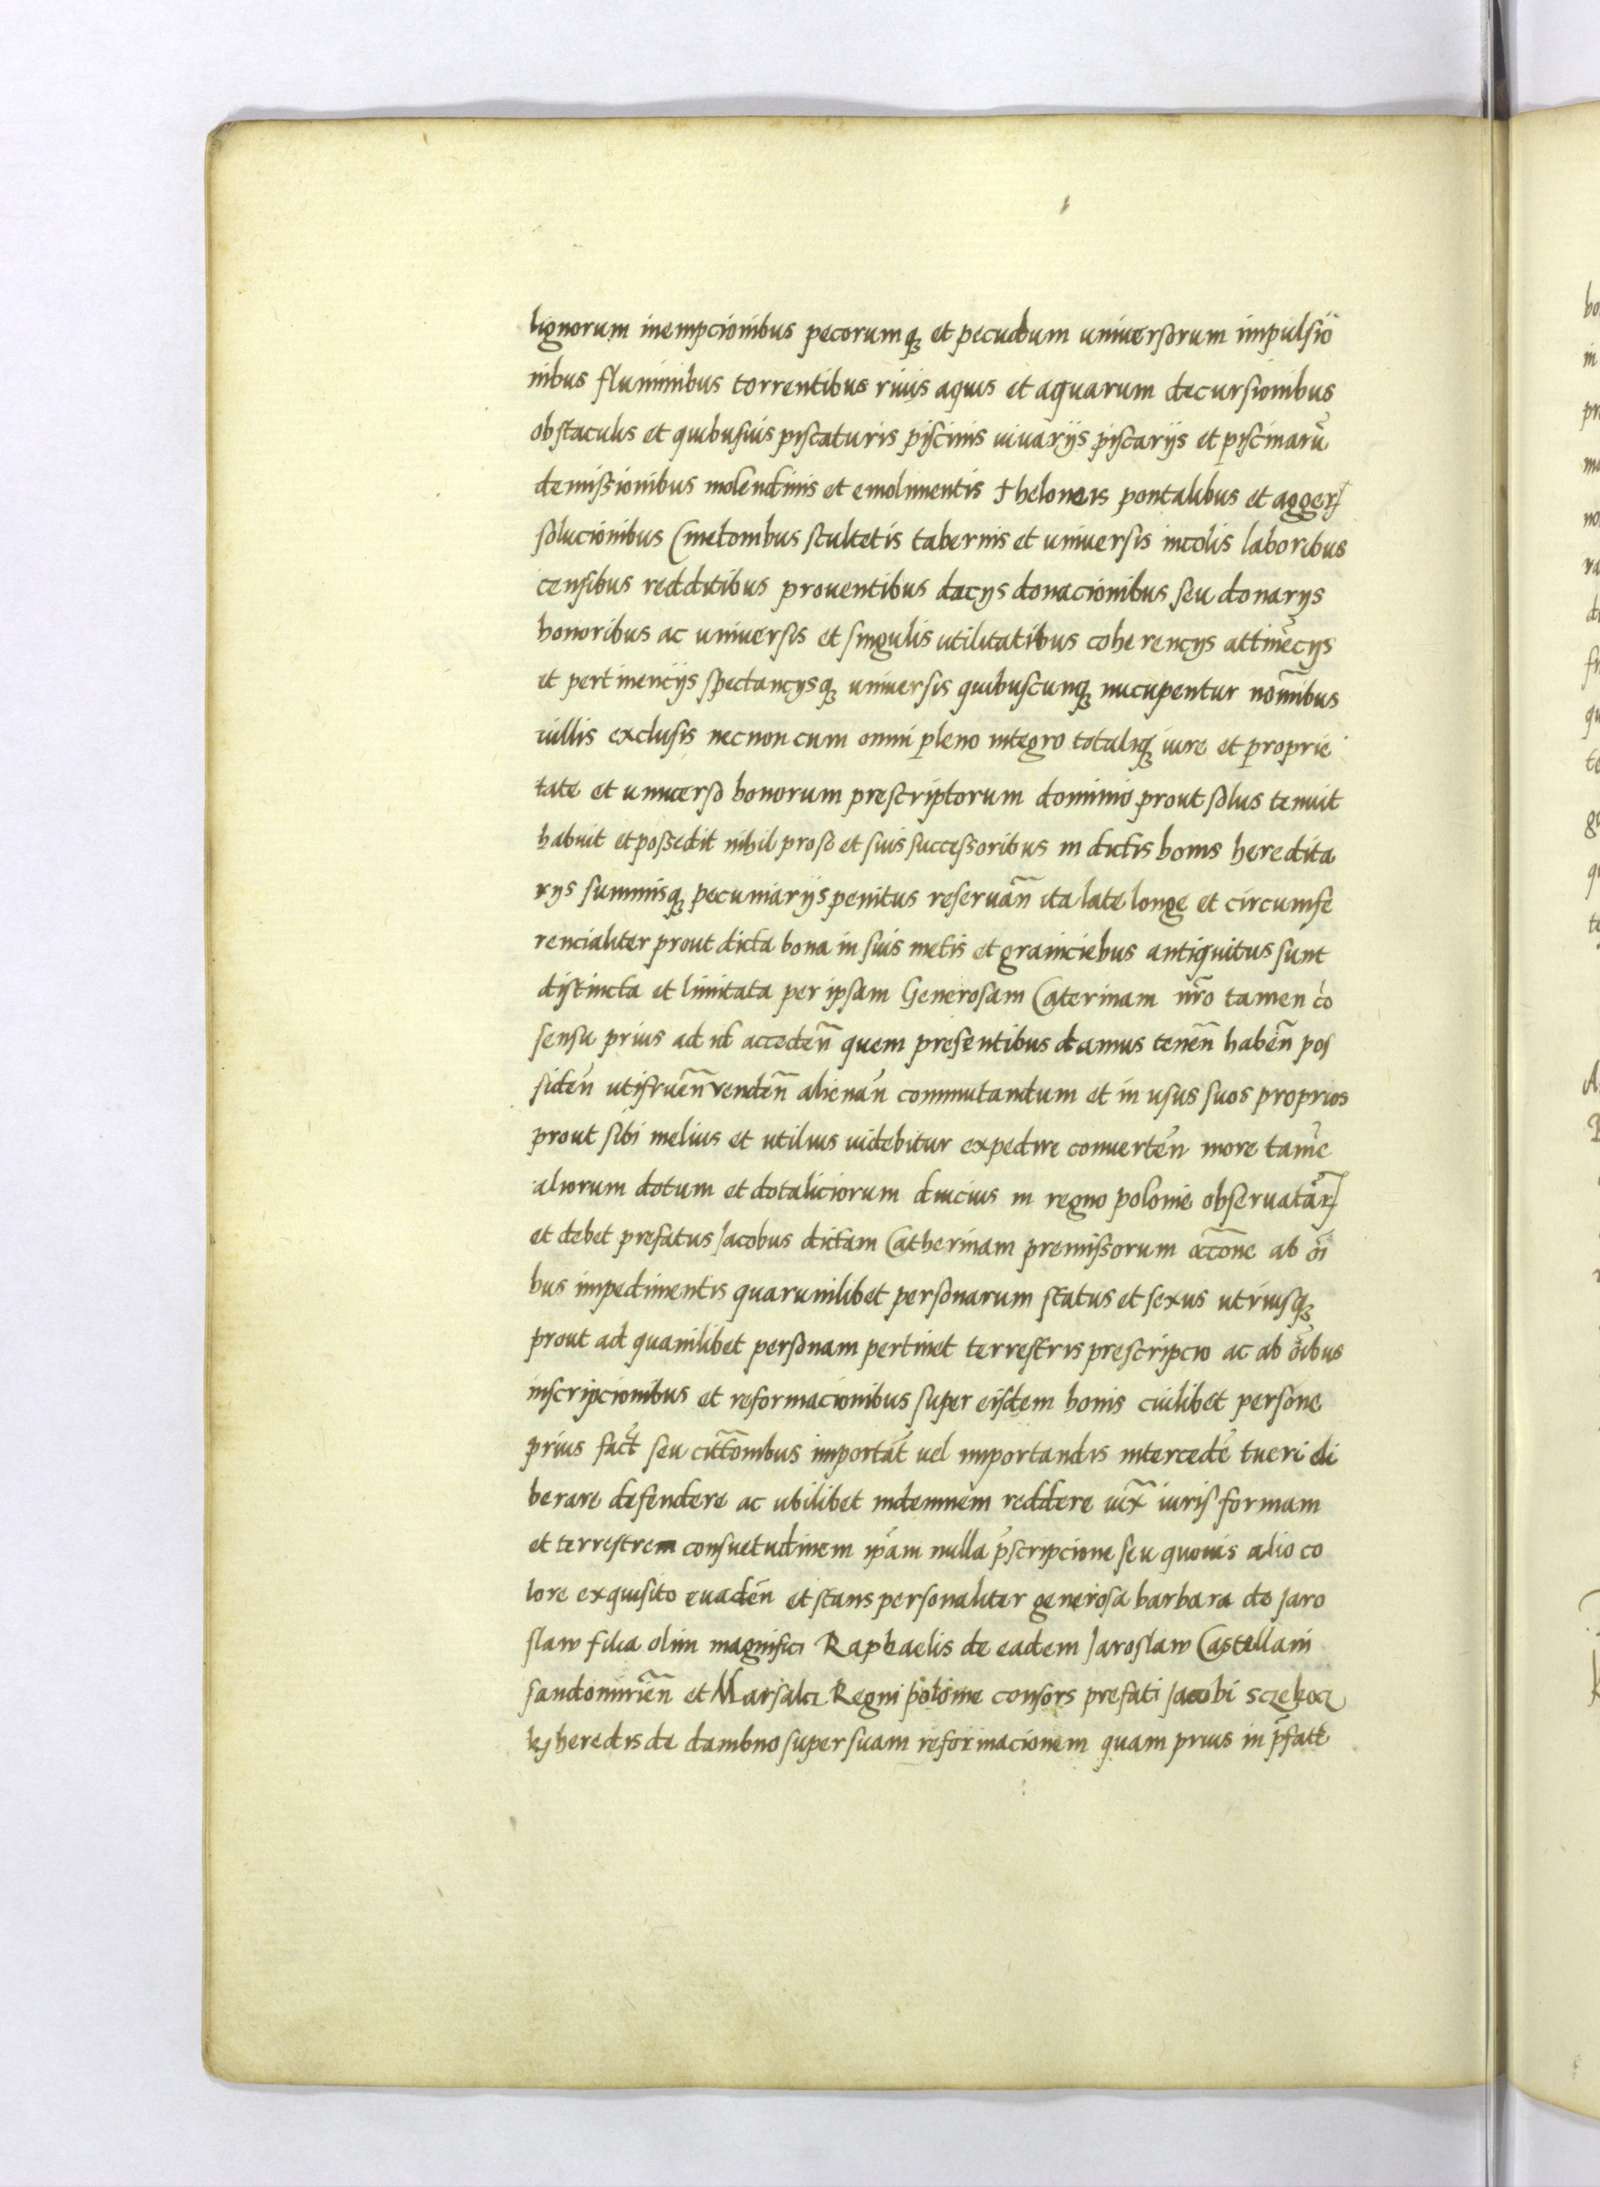 lignorum inempcionibus pecorumq et pecudum universorum impulsio
nibus fluminibus torrentibus riuis aquis et aquarum decursionibus
obstaculis et quibusuis piscaturis piscinis viuarijs piscarijs et piscinarũ
demissionibus molendinis et emolimentis theloneis pontalibus et agger
solucionibus Cmetonibus scultetis tabernis et universis incolis laboribus
censibus redditibus prouentibus dacijs donacionibus seu donarijs
honoribus ac universis et singulis utilitatibus coherencijs attinẽcijs
et pertinencijs spectancijsq universis quibuscunq nucupentur nominibus
uillis exclusis necnon cum omni pleno integro totaliq iure et proprie
tate et universo bonorum prescriptorum dominio prout solus tenuit
habuit et possedit nihil pro se et suis successoribus in dictis bonis heredita
rijs summisq pecuniarijs penitus reservañ ita late longe et circumfe
rencialiter prout dicta bona in suis metis et graniciebus antiquitus sunt
distincta et limitata per ipsam Generosam Caterinam nr̃o tamen cõ
sensu prius ad id accedeñ quem presentibus damus teneñ habeñ pos
sideñ utifrueñ vendeñ alienañ commutandum et in usus suos proprios
prout sibi melius et utilius uidebitur expedire converteñ more tamẽ
aliorum dotum et dotaliciorum diucius in regno polonie observatar
et debet prefatus Jacobus dictam Catherinam premissorum occ̃one ab õi
bus impedimentis quarumlibet personarum status et sexus utriusq
prout ad quamlibet personam pertinet terrestris prescripcio ac ab õibus
inscripcionibus et reformacionibus super eisdem bonis cuilibet persone
prius fact̃ seu cittõnibus importat̃ uel importandis intercedẽ tueri eli
berare defendere ac ubilibet indemnem reddere iux̃ iuris formam
et terrestrem consuetudinem ip̃am nulla p̃scripcione seu quouis alio co
lore exquisito euadeñ et stans personaliter generosa barbara de Jaro
slaw filia olim magnifici Raphaelis de eadem Jaroslaw Castellani
sandomirieñ et Marsalci Regni polonie consors prefati Jacobi sczekocz
kij heredis de dambno super suam reformacionem quam prius in p̃fatt